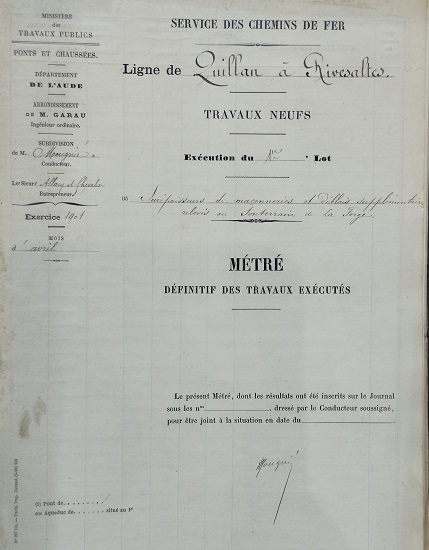 MINISTÈRE
des
TRAVAUX PUBLICS
PONTS ET CHAUSSÉES.
DÉPARTEMENT
DE L'AUDE
ARRONDISSEMENT
DE M. GARAU
Ingénieur ordinaire.
SUBDIVISION
de M. Mouynié
Conducteur.
Le Sieur Allary et Chevalier
Entrepreneur
Exercice 1901
MOIS
d'avril
SERVICE DES CHEMINS DE FER
Ligne de Quillan à Rivesaltes.
TRAVAUX NEUFS
Exécution du 1er Lot
(1) Surépaisseurs de maçonneries et déblais supplémentaires
relevés au Souterrain de la Forge.
MÉTRÉ
DÉFINITIF DES TRAVAUX EXÉCUTÉS
Le présent Métré, dont les résultats ont été inscrits sur le Journal
sous les nos , dressé par le Conducteur soussigné,
pour être joint à la situation en date du
(1) Pont de
ou Aqueduc de situé au Pt